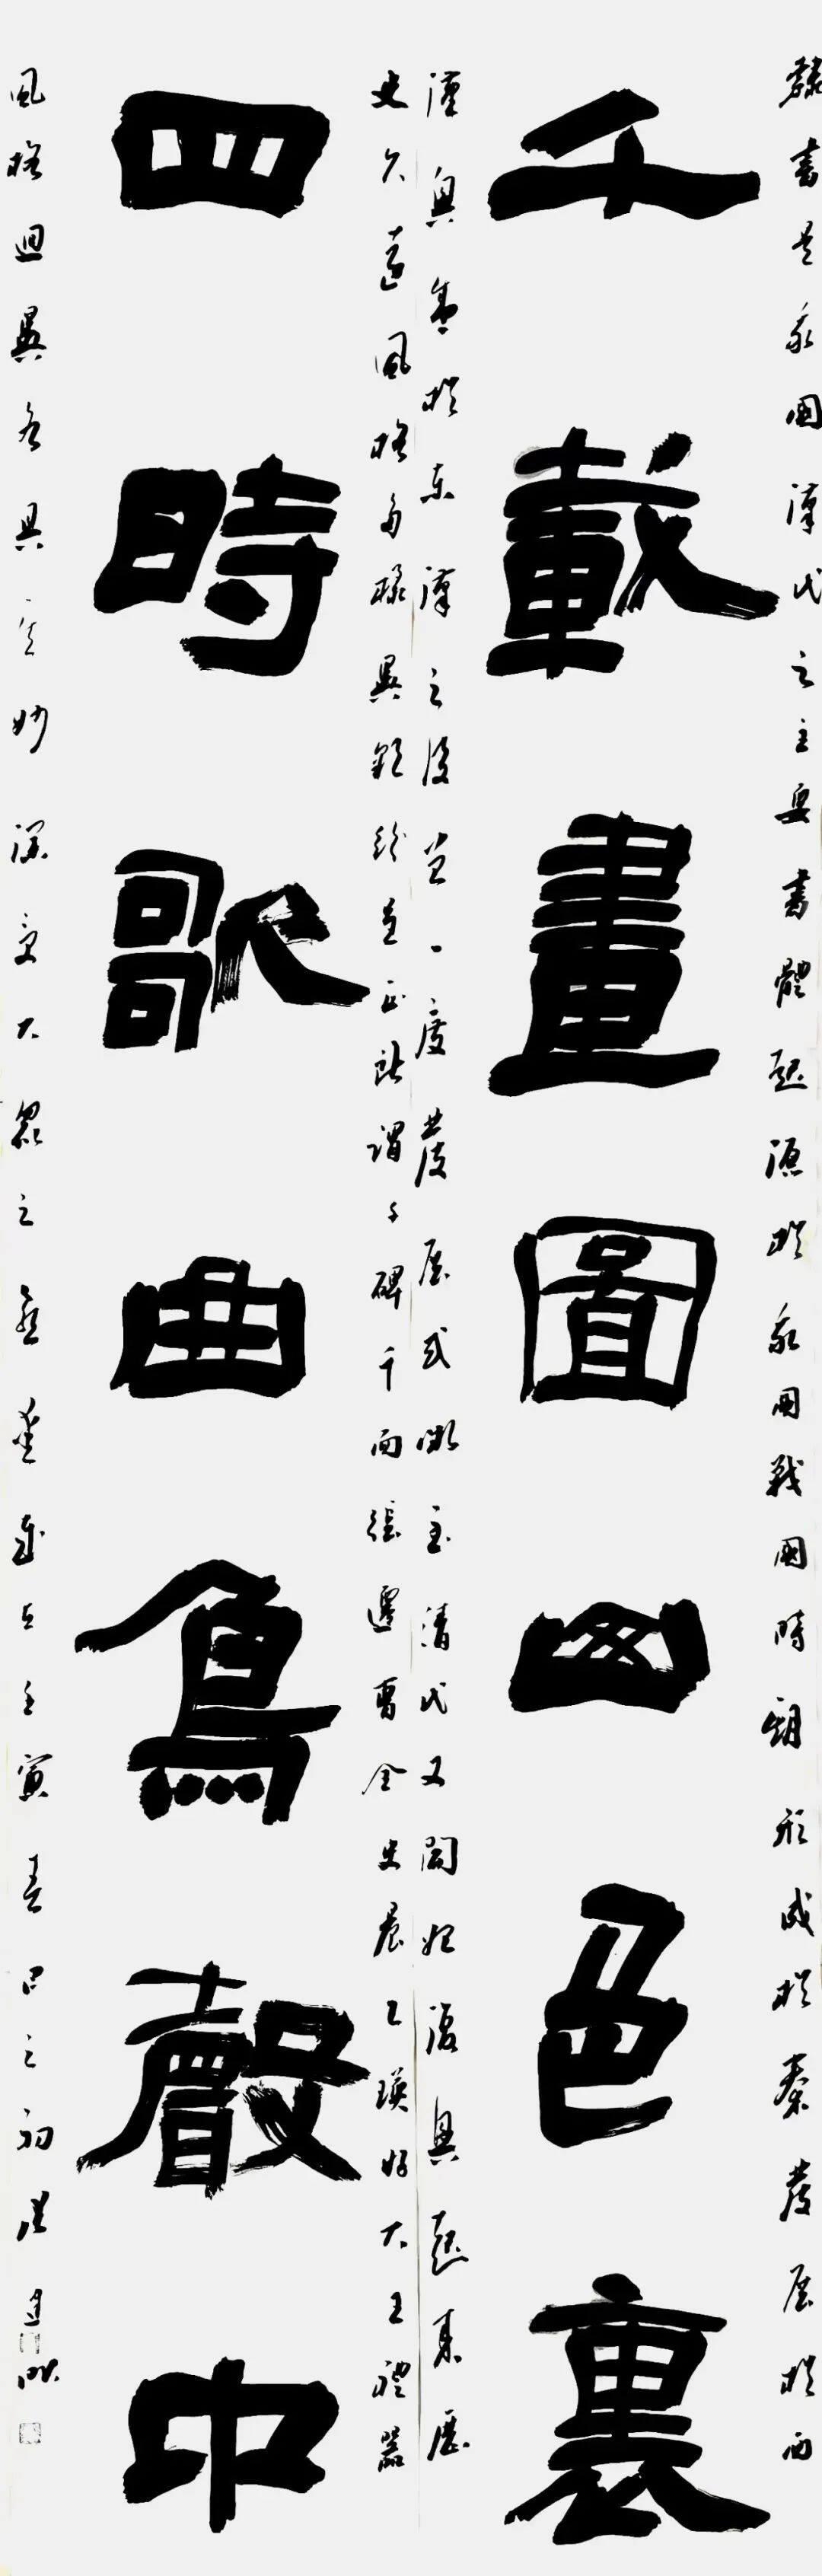 隸書是我國漢代之主要書體起源於我國戰國時期形成於秦發展於西
千載畫圖山色裏
漢興盛於東漢之後一度發展式微至清代又開始復興起來歷
史久遠風格多樣異紛呈正所謂千碑千面張遷曹全史晨乙瑛好大王禮器
四時歌曲鳥聲中
風格迥異各具其妙深受大眾之喜愛歲在壬寅春日之初